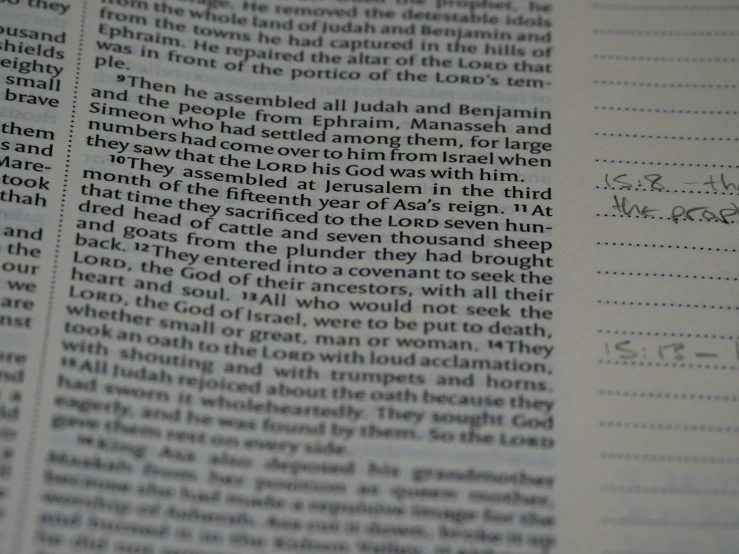 they
ousand
shields
eighty
small
brave
them
s and
Mare-
took
thah
and
the
our
we
are
nst
ere
nd
a
the prophet, he
He removed the detestable idols
from the whole land of Judah and Benjamin and
from the towns he had captured in the hills of
Ephraim. He repaired the altar of the LORD that
was in front of the portico of the LORD's tem-
ple.
9 Then he assembled all Judah and Benjamin
and the people from Ephraim, Manasseh and
Simeon who had settled among them, for large
numbers had come over to him from Israel when
they saw that the LORD his God was with him.
10 They assembled at Jerusalem in the third
month of the fifteenth year of Asa's reign. 11 At
that time they sacrificed to the LORD seven hun-
dred head of cattle and seven thousand sheep
and goats from the plunder they had brought
back. 12 They entered into a covenant to seek the
LORD, the God of their ancestors, with all their
heart and soul. 13 All who would not seek the
LORD, the God of Israel, were to be put to death,
whether small or great, man or woman. 14 They
took an oath to the LORD with loud acclamation,
with shouting and with trumpets and horns.
15 All Judah rejoiced about the oath because they
had sworn it wholeheartedly. They sought God
eagerly, and he was found by them. So the LORD
gave them rest on every side.
16 King Asa also deposed his grandmother
Maakah from her position as queen mother,
because she had made a repulsive image for the
worship of Asherah. Asa cut it down, broke it up
and burned it in the Kidron Valley.
he did not
15:8 - th
the prop
15:13 -